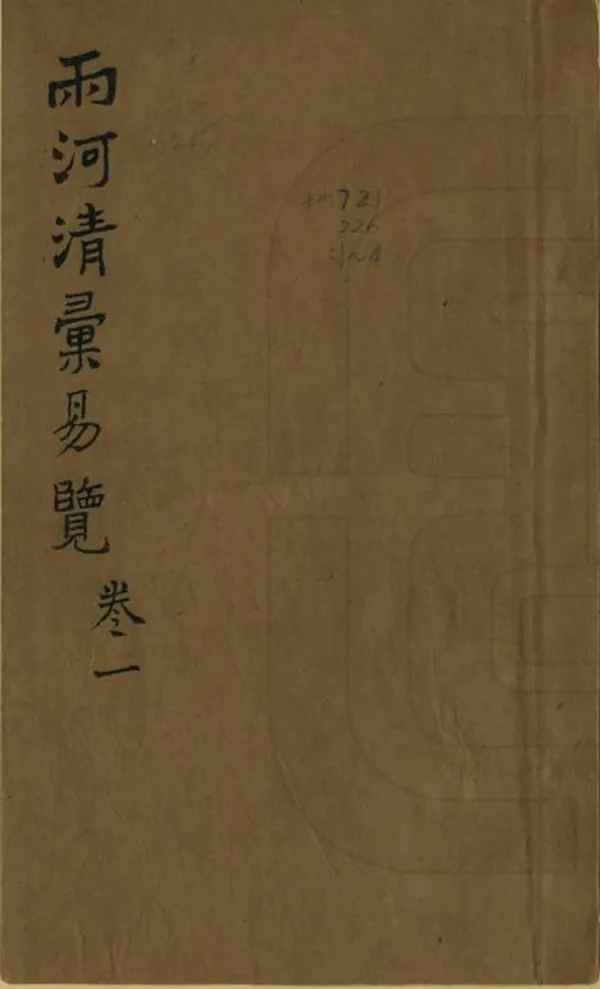 兩河清彙易覽
卷一
地721
226